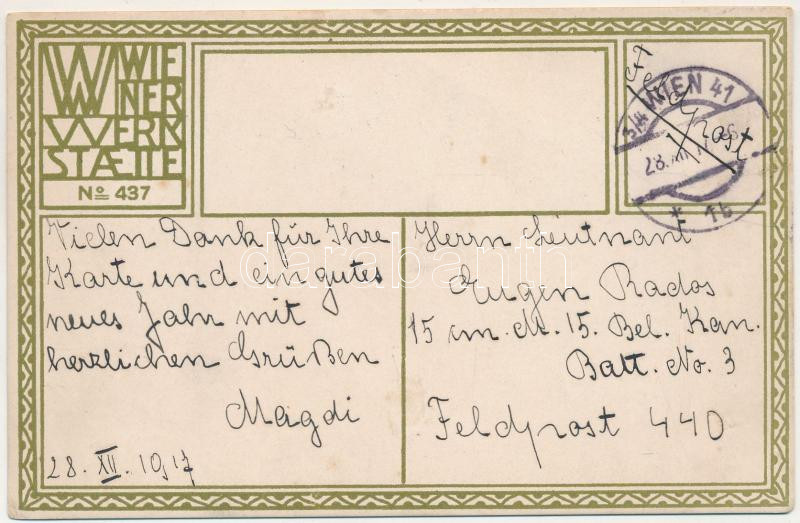 WIE
NER
WERK
STÆTTE
No 437
Feldpost
3/4 WIEN 41
* 1b
Vielen Dank für Ihre
Karte und ein gutes
neues Jahr mit
herzlichen Grüßen
Magdi
28. XII. 1917
Herrn Leutnant
Eugen Rados
15 cm. M. 15. Bel. Kan.
Batt. No. 3
Feldpost 440
darabanth